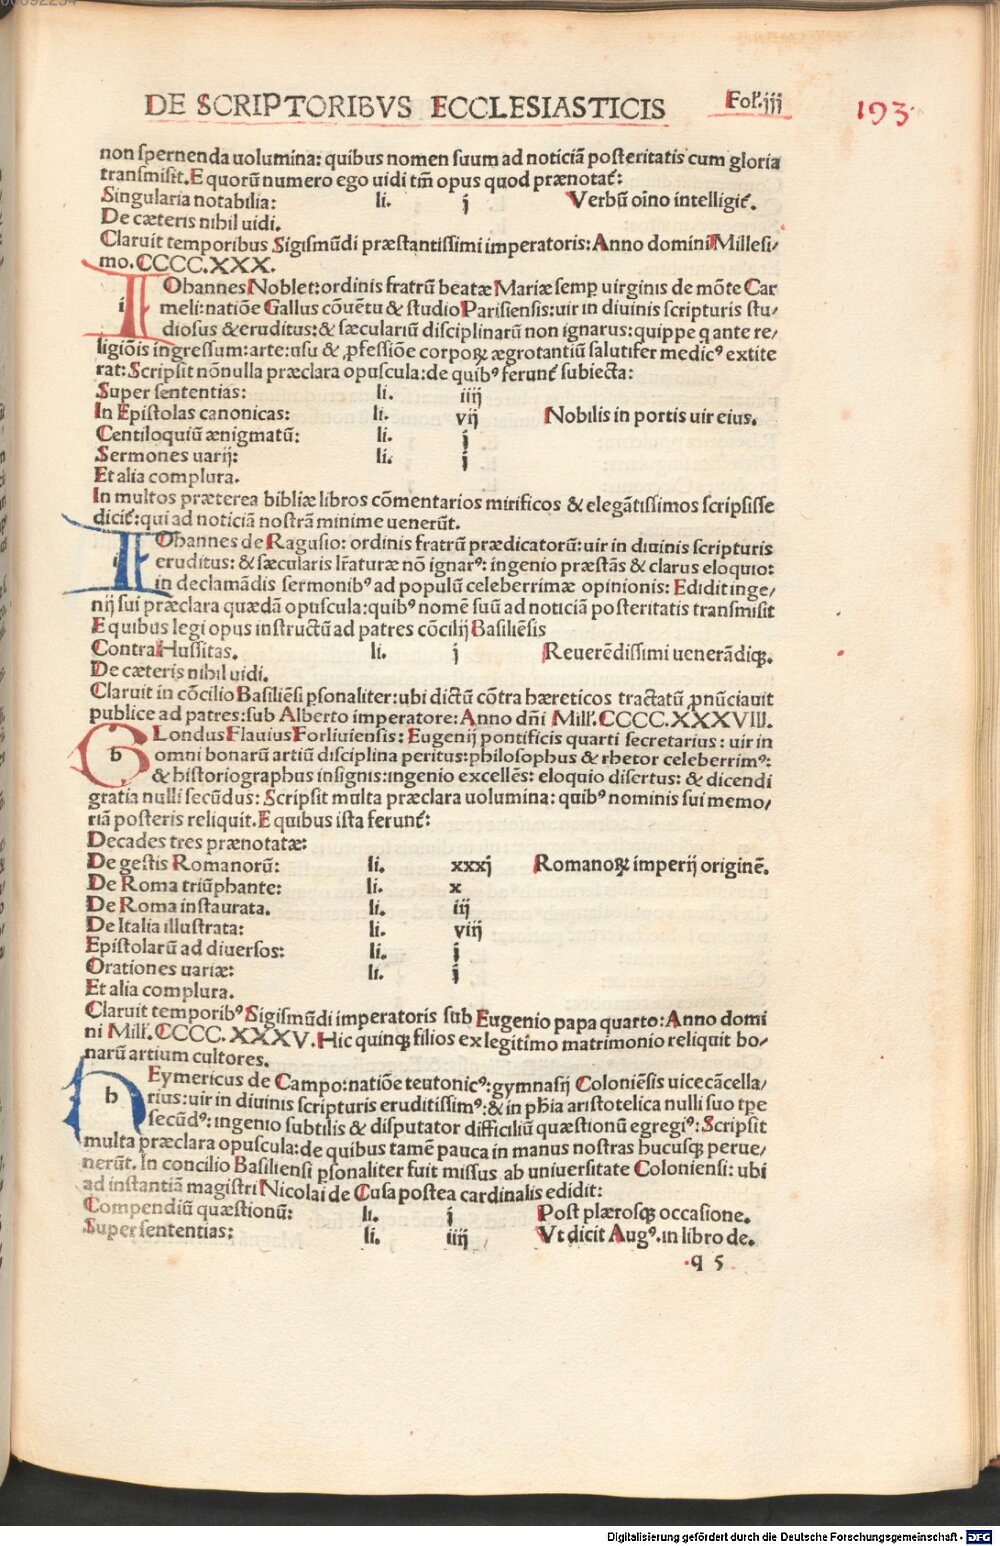 DE SCRIPTORIBVS ECCLESIASTICIS Fol'.iij 193.
non spernenda uolumina: quibus nomen suum ad noticiã posteritatis cum gloria
transmisit. E quorũ numero ego uidi tm̃ opus quod prænotat̃:
Singularia notabilia: li. j Verbũ oĩno intelligit̃.
De cæteris nihil uidi.
Claruit temporibus Sigismũdi præstantissimi imperatoris: Anno domini Millesi/
mo.CCCC.XXX.
i IOhannes Noblet: ordinis fratrũ beatæ Mariæ semp uirginis de mõte Car
meli: natiõe Gallus cõuẽtu & studio Parisiensis: uir in diuinis scripturis stu/
diosus & eruditus: & sæculariũ disciplinarũ non ignarus: quippe q ante re/
ligiõis ingressum: arte: usu & ꝓfessiõe corpoꝝ ægrotantiũ salutifer medicꝰ extite
rat: Scripsit nõnulla præclara opuscula: de quibꝰ ferunt̃ subiecta:
Super sententias: li. iiij
In Epistolas canonicas: li. vij Nobilis in portis uir eius.
Centiloquiũ ænigmatũ: li. j
Sermones uarij: li. j
Et alia complura.
In multos præterea bibliæ libros cõmentarios mirificos & elegãtissimos scripsisse
dicit̃: qui ad noticiã nostrã minime uenerũt.
i IOhannes de Ragusio: ordinis fratrũ prædicatorũ: uir in diuinis scripturis
eruditus: & sæcularis lr̃aturæ nõ ignarꝰ: ingenio præstãs & clarus eloquio:
in declamãdis sermonibꝰ ad populũ celeberrimæ opinionis: Edidit inge/
nij sui præclara quædã opuscula: quibꝰ nomẽ suũ ad noticiã posteritatis transmisit
E quibus legi opus instructũ ad patres cõcilij Basiliẽsis
Contra Hussitas. li. j Reuerẽdissimi uenerãdiqꝫ.
De cæteris nihil uidi.
Claruit in cõcilio Basiliẽsi ꝑsonaliter: ubi dictũ cõtra hæreticos tractatũ ꝓnũciauit
publice ad patres: sub Alberto imperatore: Anno dñi Mill'.CCCC.XXXVIII.
b LOndus Flauius Forliuiensis: Eugenij pontificis quarti secretarius: uir in
omni bonarũ artiũ disciplina peritus: philosophus & rhetor celeberrimꝰ:
& historiographus insignis: ingenio excellẽs: eloquio disertus: & dicendi
gratia nulli secũdus: Scripsit multa præclara uolumina: quibꝰ nominis sui memo/
riã posteris reliquit. E quibus ista ferunt̃:
Decades tres prænotatæ:
De gestis Romanorũ: li. xxxj Romanoꝝ imperij originẽ.
De Roma triũphante: li. x
De Roma instaurata. li. iij
De Italia illustrata: li. viij
Epistolarũ ad diuersos: li. j
Orationes uariæ: li. j
Et alia complura.
Claruit temporibꝰ Sigismũdi imperatoris sub Eugenio papa quarto: Anno domi
ni Mill'.CCCC.XXXV. Hic quinqꝫ filios ex legitimo matrimonio reliquit bo/
narũ artium cultores.
h HEymericus de Campo: natiõe teutonicꝰ: gymnasij Coloniẽsis uicecãcella/
rius: uir in diuinis scripturis eruditissimꝰ: & in ph̃ia aristotelica nulli suo tꝑe
secũdꝰ: ingenio subtilis & disputator difficiliũ quæstionũ egregiꝰ: Scripsit
multa præclara opuscula: de quibus tamẽ pauca in manus nostras hucusqꝫ perue/
nerũt. In concilio Basiliensi ꝑsonaliter fuit missus ab uniuersitate Coloniensi: ubi
ad instantiã magistri Nicolai de Cusa postea cardinalis edidit:
Compendiũ quæstionũ: li. j Post plærosqꝫ occasione.
Super sententias: li. iiij Vt dicit Augꝰ. in libro de.
q 5
Digitalisierung gefördert durch die Deutsche Forschungsgemeinschaft - DFG